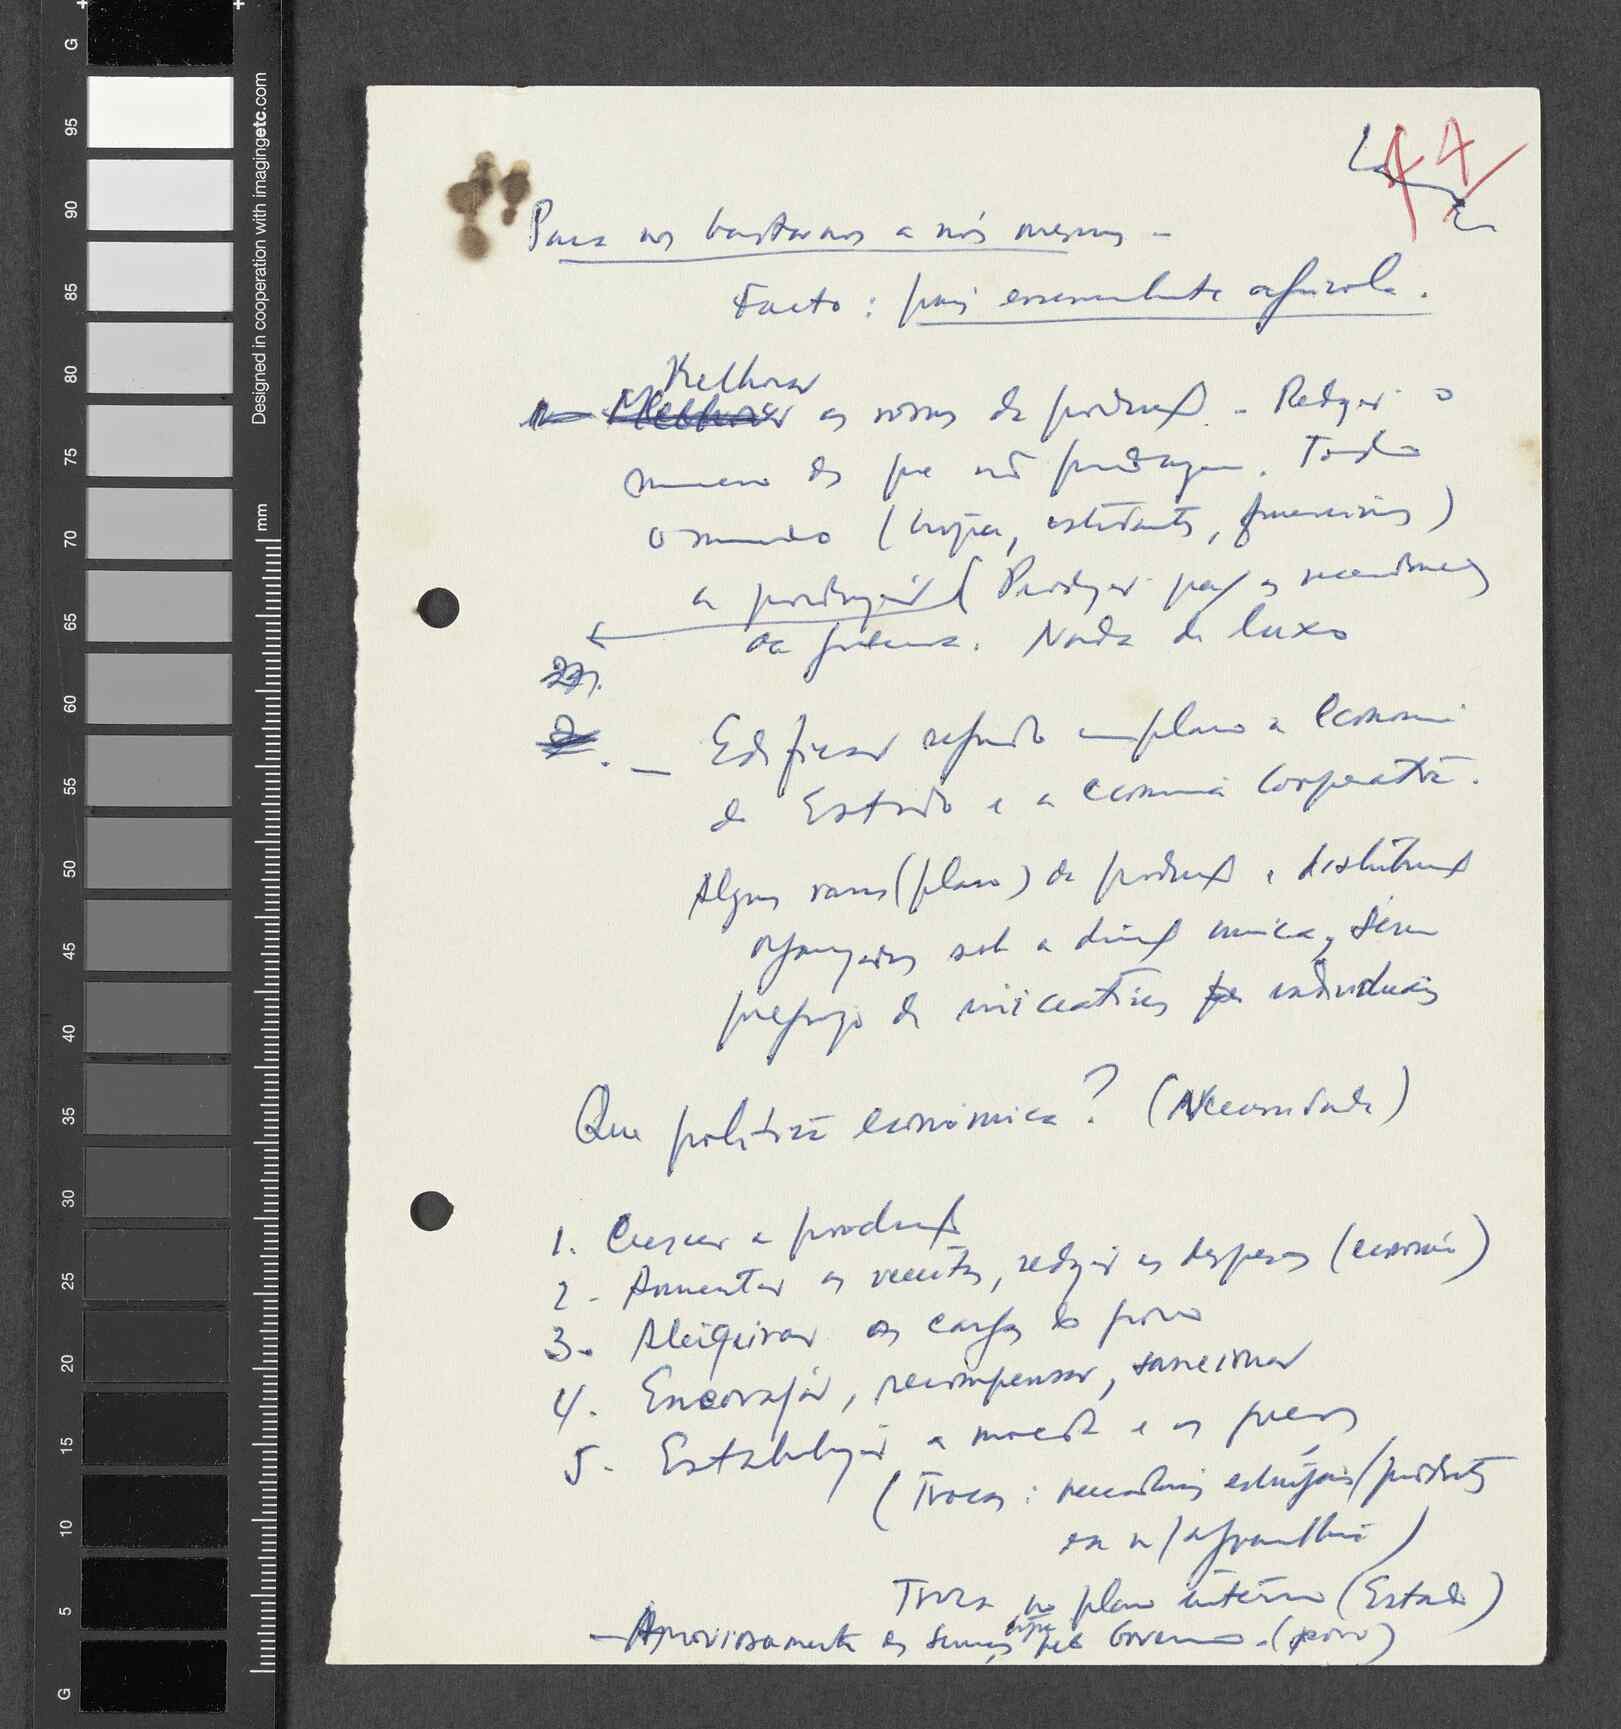 44
Para nos bastarmos a nós mesmos -
Facto: país essencialmente agrícola.
Melhorar
Melhorar as nossas de produção. - Reduzir o
numero dos que não produzem. Todo
o mundo (tropa, estudantes, funcionários)
a produzir ( Produzir para as necessidades
da guerra. Nada de luxo
2.
- Edificar segundo um plano a economia
do Estado e a economia Corporativa.
Alguns ramos (plano) de produção e distribuição
organizados sob a direção unica, sem
prejuizo de iniciativas individuais
Que politica económica? (Necessidade)
1. Crescer a produção
2. Aumentar as receitas, reduzir as despesas (economia)
3. Aleigeirar as cargas do povo
4. Encorajar, recompensar, sancionar
5. Estabilizar a moeda e os preços
(Trocas: mercadorias estrangeiras/produtos
da n/ agricultura)
Troca no plano interno (Estado)
- Aprovisionamento
pelo Governo - (povo)
Designed in cooperation with imagingetc.com
mm
G
95
90
85
80
75
70
65
60
55
50
45
40
35
30
25
20
15
10
5
G